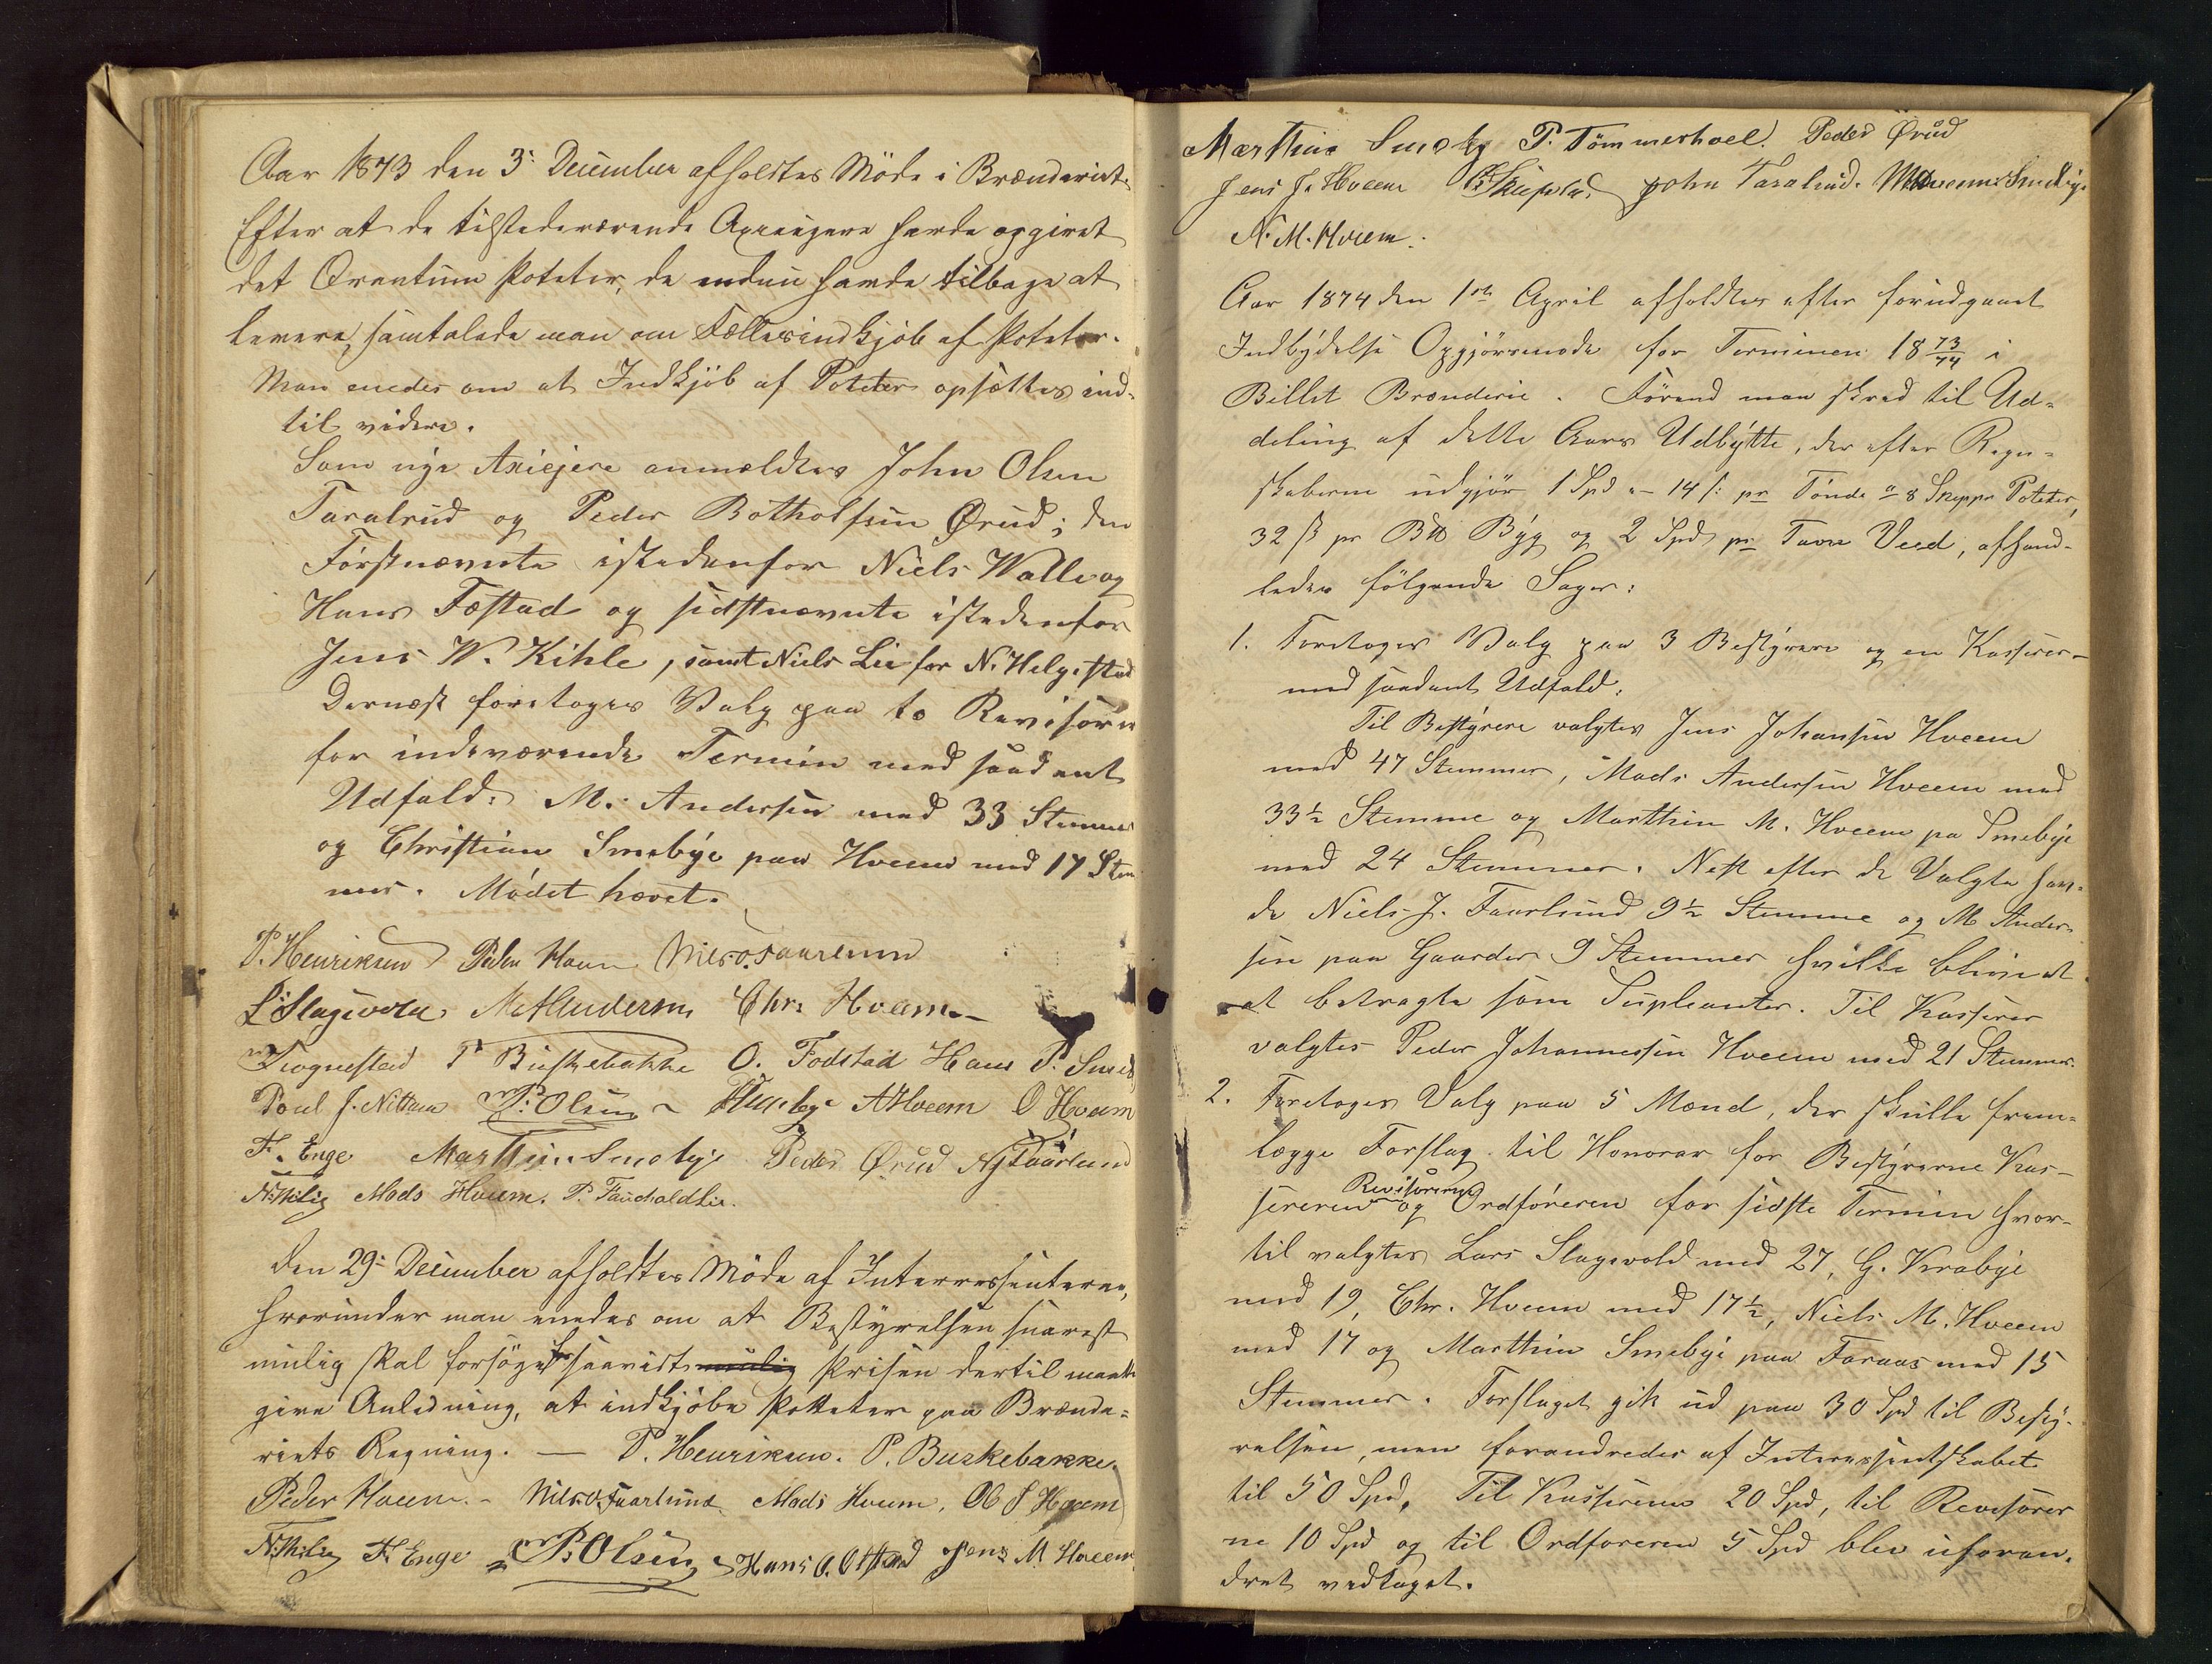 Aar 1873 den 3: December afholdtes Möde i Brænderiet.
Efter at de tilstedeværende Axieejere havde opgivet
det Qvantum Poteter, de endnu havde tilbage at
levere, samtalede man om Fællesindkjöb af Poteter.
Man enedes om at Indkjöb af Poteter opsættes ind-
til videre.
Som nye Axiejere anmældtes John Olsen
Taralrud og Peder Botholfsen Ørud; den
Förstnævnte istedenfor Niels Walle og
Hans Fæstad og sidstnævnte istedenfor
Jens W. Kihle, samt Niels Lie for N. Helgestad
Dernæst foretoges Valg paa to Revisorer
for indeværende Termin med saadant
Udfald: M. Andersen med 33 Stemmer
og Christian Smebye paa Hveem med 17 Stem
mer. Mödet hævet.
P. Henriksen Peder Hveem Nils O. Faarlund
L. Slagsvold M. Andersen Chr. Hveem
Trognestad P. Buskebakke O. Fodstad Hans P. Smeb
Poul J. Nettum P. Olsen A Hveem O Hveem
F. Enge Marthin Smeby Peder Ørud N J Faarlund
N. Kihle Mads Hveem. P. Fauchaldlie.
Den 29: December afholdtes Möde af Interressenterne,
hvorunder man enedes om at Bestyrelsen snarest
mulig skal forsöge saavidt mulig Prisen dertil maatte
give Anledning, at indkjöbe Potteter paa Brænde=
riets Regning. — P. Henriksen. P. Buskebakke.
Peder Hveem. - Nils O. Faarlund Mads Hveem, Ole J Hveem
N. Kihle F. Enge P. Olsen Hans O. Ofstad Jens M Hveem
Marthin Smeby P. Tömmerhoel. Peder Ørud
Jens J. Hveem John Taralrud. Smebye
N. M. Hveem.
Aar 1874 den 1ste April afholdtes efter forudgaaet
Indbydelse Opgjörsmöde for Terminen 18 73/74 i
Billet Brænderie. Förend man skred til Ud=
deling af dette Aars Udbytte, der efter Regn=
skaberne udgjör 1 Spd - 14 ß pr Tönde a 8 Skepper Poteter,
32 ß pr B℔ Byg og 2 Spd pr Favn Veed, afhand-
ledes fölgende Sager:
1. Foretoges Valg paa 3 Bestyrere og en Kasserer
med saadant Udfald:
Til Bestyrere valgtes Jens Johansen Hveem
med 47 Stemmer, Mads Andersen Hveem med
33½ Stemme og Marthin M. Hveem pa Smebye
med 24 Stemmer. Nest efter de Valgte hav-
de Niels J. Faarlund 9½ Stemme og M Ander-
sen paa Gaarder 9 Stemmer hvilke bliver
at betragte som Supleanter. Til Kasserer
valgtes Peder Johannessen Hveem med 21 Stemmer.
2. Foretoges Valg paa 5 Mænd, der skulle frem=
lægge Forslag til Honorar for Bestyrerne Kas-
sereren Revisorerne og Ordföreren for sidste Termin hvor-
til valgtes Lars Slagsvold med 27, G. Kraby̆e
med 19, Chr. Hveem med 17½, Niels M. Hveem
med 17 og Marthin Smebye paa Faraas med 15
Stemmer. Forslaget gik ud paa 30 Spd til Besty-
relsen, men forandredes af Interessentskabet
til 50 Spd, Til Kassereren 20 Spd, til Revisorer
ne 10 Spd og til Ordföreren 5 Spd blev uforan-
dret vedtaget.